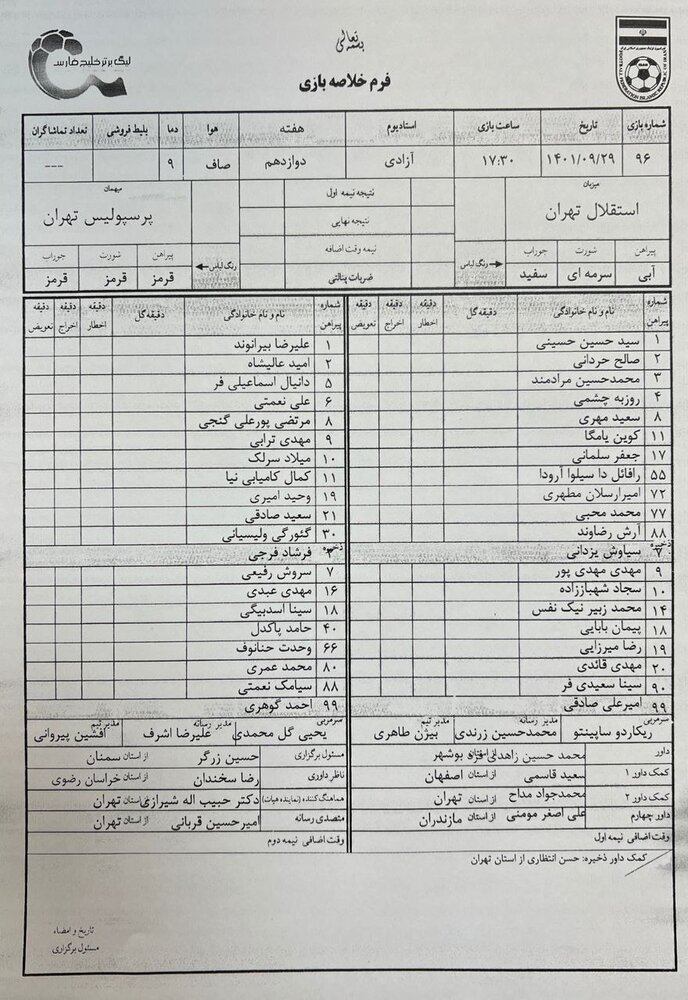 بسمه تعالی
لیگ برتر خلیج فارس
فرم خلاصه بازی
شماره بازی تاریخ ساعت بازی استادیوم هفته هوا دما بلیط فروشی تعداد تماشاگران
۹۶ ۱۴۰۱/۰۹/۲۹ ۱۷:۳۰ آزادی دوازدهم صاف ۹ ---
میزبان
استقلال تهران
پیراهن شورت جوراب رنگ لباس
آبی سرمه ای سفید
نتیجه نیمه اول
نتیجه نهایی
نیمه وقت اضافه
ضربات پنالتی
میهمان
پرسپولیس تهران
رنگ لباس پیراهن شورت جوراب
قرمز قرمز قرمز
شماره پیراهن نام و نام خانوادگی دقیقه گل دقیقه اخطار دقیقه اخراج دقیقه تعویض
۱ سید حسین حسینی
۲ صالح حردانی
۳ محمدحسین مرادمند
۴ روزبه چشمی
۸ سعید مهری
۱۱ کوین یامگا
۱۷ جعفر سلمانی
۵۵ رافائل دا سیلوا آرودا
۷۲ امیرارسلان مطهری
۷۷ محمد محبی
۸۸ آرش رضاوند
ذخیره
سیاوش یزدانی
۹ مهدی مهدی پور
۱۰ سجاد شهباززاده
۱۴ محمد زبیر نیک نفس
۱۸ پیمان بابایی
۱۹ رضا میرزایی
۲۰ مهدی قائدی
۹۰ سینا سعیدی فر
۹۹ امیرعلی صادقی
شماره پیراهن نام و نام خانوادگی دقیقه گل دقیقه اخطار دقیقه اخراج دقیقه تعویض
۱ علیرضا بیرانوند
۲ امید عالیشاه
۵ دانیال اسماعیلی فر
۶ علی نعمتی
۸ مرتضی پورعلی گنجی
۹ مهدی ترابی
۱۰ میلاد سرلک
۱۱ کمال کامیابی نیا
۱۹ وحید امیری
۲۱ سعید صادقی
۳۰ گئورگی ولیسیانی
ذخیره
فرشاد فرجی
۷ سروش رفیعی
۱۶ مهدی عبدی
۱۸ سینا اسدبیگی
۴۰ حامد پاکدل
۶۶ وحدت حنانوف
۸۰ محمد عمری
۸۸ سیامک نعمتی
۹۹ احمد گوهری
سرمربی ریکاردو ساپینتو مدیر رسانه محمدحسین زرندی مدیر تیم بیژن طاهری
سرمربی یحیی گل محمدی مدیر رسانه علیرضا اشرف مدیر تیم افشین پیروانی
داور محمد حسین زاهدی فر از استان بوشهر
کمک داور ۱ سعید قاسمی از استان اصفهان
کمک داور ۲ محمدجواد مداح از استان تهران
داور چهارم علی اصغر مومنی از استان مازندران
وقت اضافی نیمه اول
مسئول برگزاری حسین زرگر از استان سمنان
ناظر داوری رضا سخندان از استان خراسان رضوی
هماهنگ کننده (نماینده هیات) دکتر حبیب اله شیرازی از استان تهران
متصدی رسانه امیرحسین قربانی از استان تهران
وقت اضافی نیمه دوم
کمک داور ذخیره: حسن انتظاری از استان تهران
تاریخ و امضاء
مسئول برگزاری